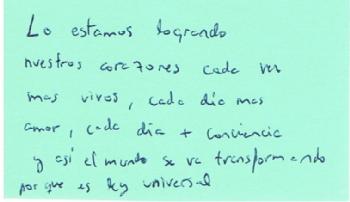 Lo estamos logrando
nuestros corazones cada vez
mas vivos, cada día mas
amor, cada día + conciencia
y así el mundo se va transformando
porque es ley universal